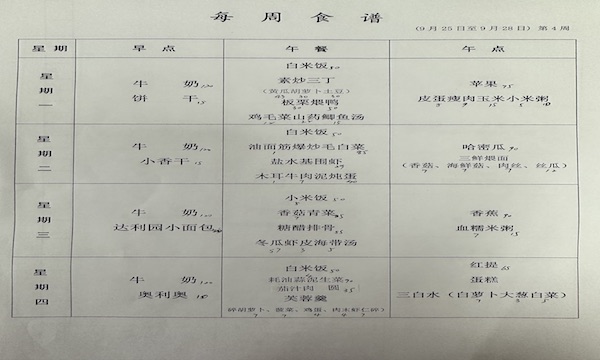 每周食谱
(9月25日至9月28日) 第4周
星期 早点 午餐 午点
星期一
牛奶100
饼干15
白米饭50
素炒三丁
(黄瓜胡萝卜土豆)
板栗煨鸭
鸡毛菜山药鲫鱼汤
苹果95
皮蛋瘦肉玉米小米粥
星期二
牛奶100
小香干15
白米饭50
油面筋爆炒毛白菜
盐水基围虾
木耳牛肉泥炖蛋
哈密瓜90
三鲜煨面
(香菇、海鲜菇、肉丝、丝瓜)
星期三
牛奶100
达利园小面包
小米饭
香菇青菜
糖醋排骨
冬瓜虾皮海带汤
香蕉90
血糯米粥
星期四
牛奶100
奥利奥
白米饭50
耗油蒜泥生菜
茄汁肉圆
芙蓉羹
红提
蛋糕
三白水(白萝卜大葱白菜)